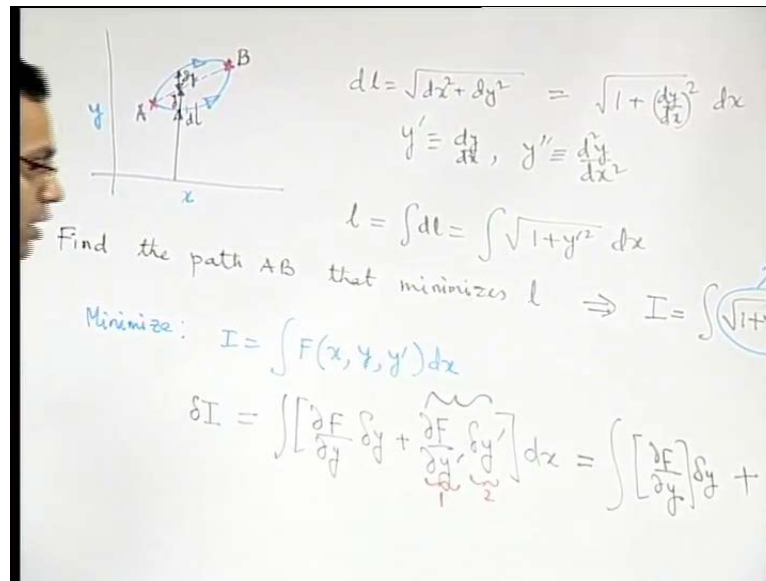 y
A
B
dl
x
dl = √dx² + dy² = √1 + (dy/dx)² dx
y' ≡ dy/dx, y'' ≡ d²y/dx²
l = ∫dl = ∫√1 + y'² dx
Find the path AB that minimizes l ⇒ I = ∫√1+
Minimize: I = ∫F(x, y, y')dx
δI = ∫[∂F/∂y δy + ∂F/∂y' δy']dx = ∫[∂F/∂y]δy +
1 2